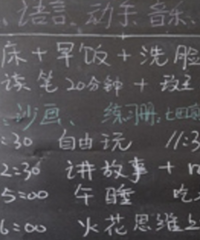 、语言、动乐、音乐、
床+早饭+洗脸
读笔20分钟+
沙画、练习册、
:30 自由玩 11:3
2:30 讲故事+
5:00 午睡 吃
6:00 火花思维